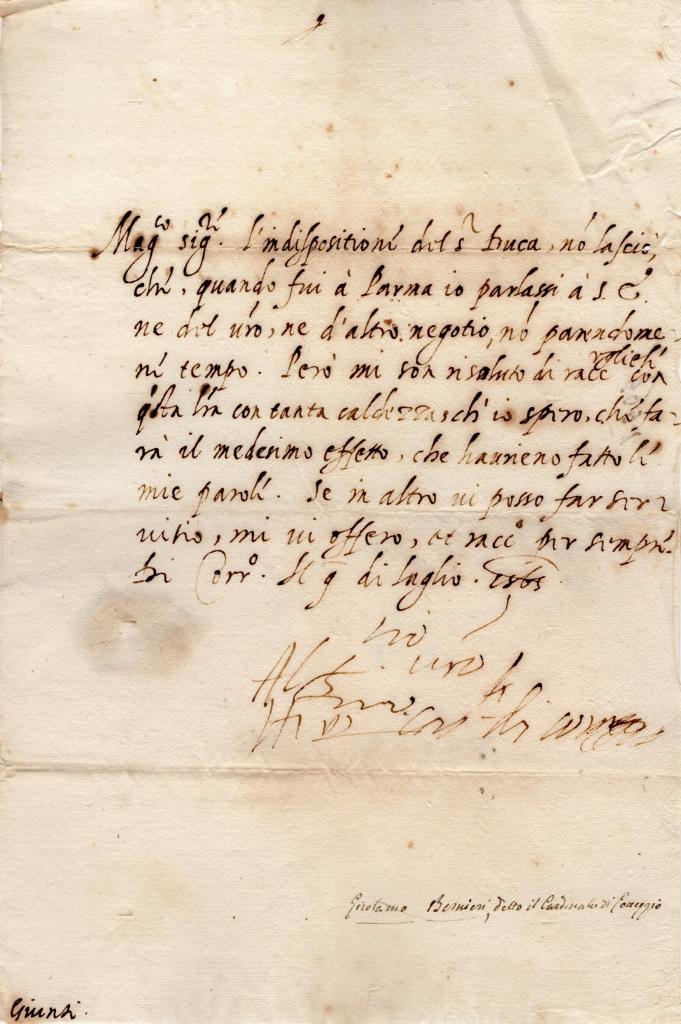 Mag.co sig.re l'indispositione del s.r Duca, nō lasciò,
che, quando fui à Parma io parlassi à S. E.
ne del vro, ne d'altro negotio, nō parendome-
ne tempo. Però mi son risoluto di racc
con
q̄sta lr̄a con tanta caldezza, ch'io spero, che fa-
rà il medesimo effetto, che haurieno fatto le
mie parole. Se in altro vi posso far ser-
vitio, mi vi offero, et racc.o per sempre.
Di Corr.o Il 9 di luglio.
vro
Car.l di
Girolamo Bernieri, detto il Cardinale di Coreggio
Giunti.